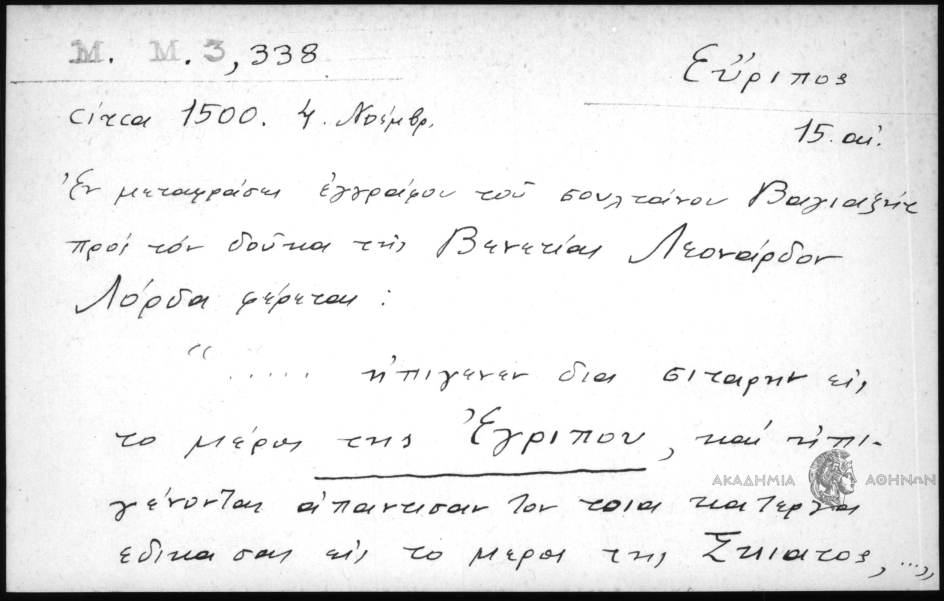 Μ. Μ. 3, 338
Εὔριπος
circa 1500. 4. Νοέμβρ.
15. αἰ.
Ἐν μεταφράσει ἐγγράφου τοῦ σουλτάνου Βαγιαζήτ
πρός τόν δοῦκα τῆς Βενετίας Λεονάρδον
Λόρδα φέρεται :
“ ..... ἠπιγενεν δια σιταρην εις
το μέρος της Ἐγριπου, καί ἠπι-
γένοντας ἀπαντισαν τον τρια κατεργα
εδικα σας εις το μερος της Σκιατος, ...„
ΑΚΑΔΗΜΙΑ ΑΘΗΝΩΝ